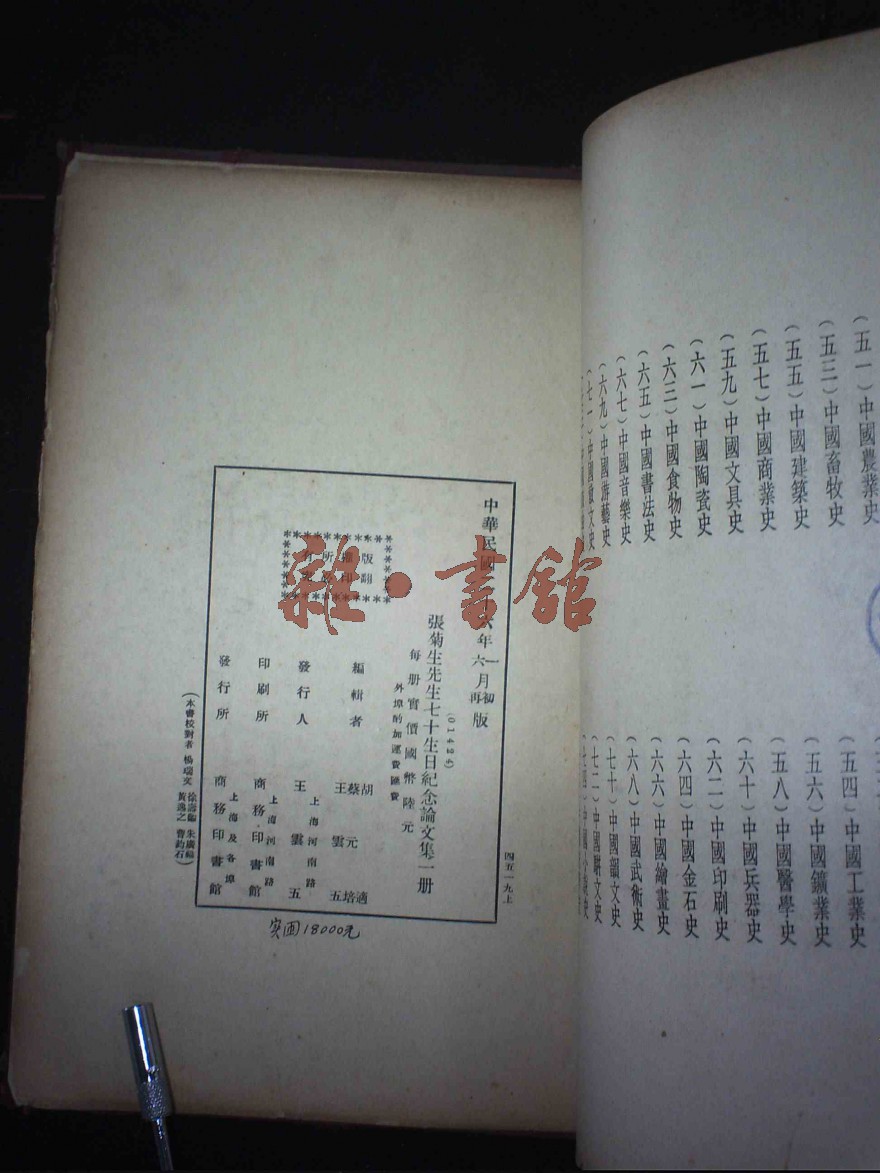 (五一)中國農業史
(五三)中國畜牧史
(五五)中國建築史
(五七)中國商業史
(五九)中國文具史
(六一)中國陶瓷史
(六三)中國食物史
(六五)中國書法史
(六七)中國音樂史
(六九)中國游藝史
(五四)中國工業史
(五六)中國鑛業史
(五八)中國醫學史
(六十)中國兵器史
(六二)中國印刷史
(六四)中國金石史
(六六)中國繪畫史
(六八)中國武術史
(七十)中國韻文史
(七二)中國駢文史
四五一九上
中華民國二十六年一月初版
六月再版
(01424)
張菊生先生七十生日紀念論文集一册
每册實價國幣陸元
外埠酌加運費匯費
版權所有
翻印必究
編輯者
胡適
蔡元培
王雲五
發行人
王雲五
上海河南路
印刷所
商務印書館
上海河南路
發行所
商務印書館
上海及各埠
(本書校對者
实囯18000元
雜·書舘